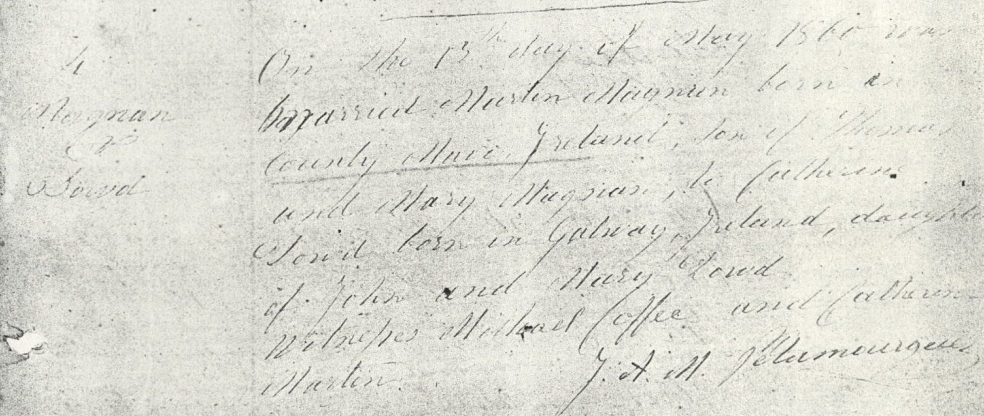 4
Magnan
&
Dowd
On the 13th day of May 1860 was
married Martin Magnan born in
County Mayo Ireland, son of Thomas
and Mary Magnan, to Catherine
Dowd born in Galway, Ireland, daughter
of John and Mary Dowd
Witnesses Michael Coffee and Catherine
Martin.
J. A. M.